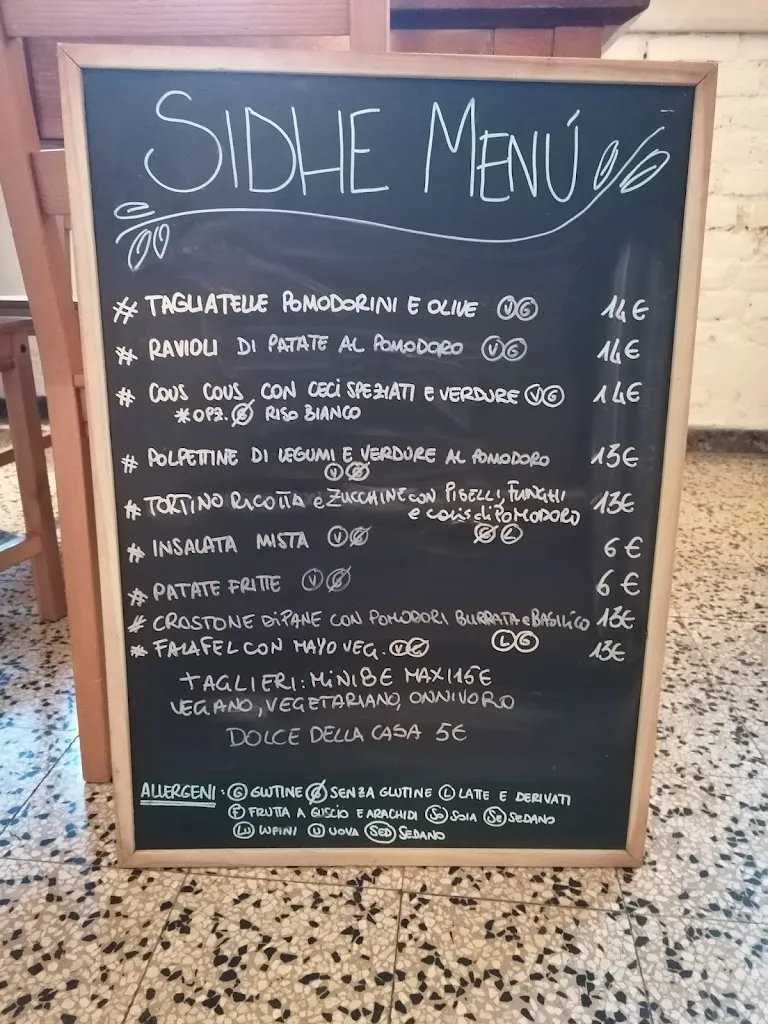 SIDHE MENÚ
# TAGLIATELLE POMODORINI E OLIVE V G 14€
# RAVIOLI DI PATATE AL POMODORO V G 14€
# COUS COUS CON CECI SPEZIATI E VERDURE V G 14€
*OPZ. G RISO BIANCO
# POLPETTINE DI LEGUMI E VERDURE AL POMODORO 13€
V G
# TORTINO RICOTTA e ZUCCHINE con PISELLI, FUNGHI 13€
e coulis di POMODORO
G L
# INSALATA MISTA V G 6€
# PATATE FRITTE V G 6€
# CROSTONE DI PANE CON POMODORI BURRATA e BASILICO 13€
L G
# FALAFEL CON MAYO VEG. V G 13€
TAGLIERI: MINI 8€ MAXI 16€
VEGANO, VEGETARIANO, ONNIVORO
DOLCE DELLA CASA 5€
ALLERGENI: G GLUTINE G SENZA GLUTINE L LATTE E DERIVATI
F FRUTTA A GUSCIO E ARACHIDI SO SOIA SE SEDANO
LU LUPINI U UOVA SED SEDANO